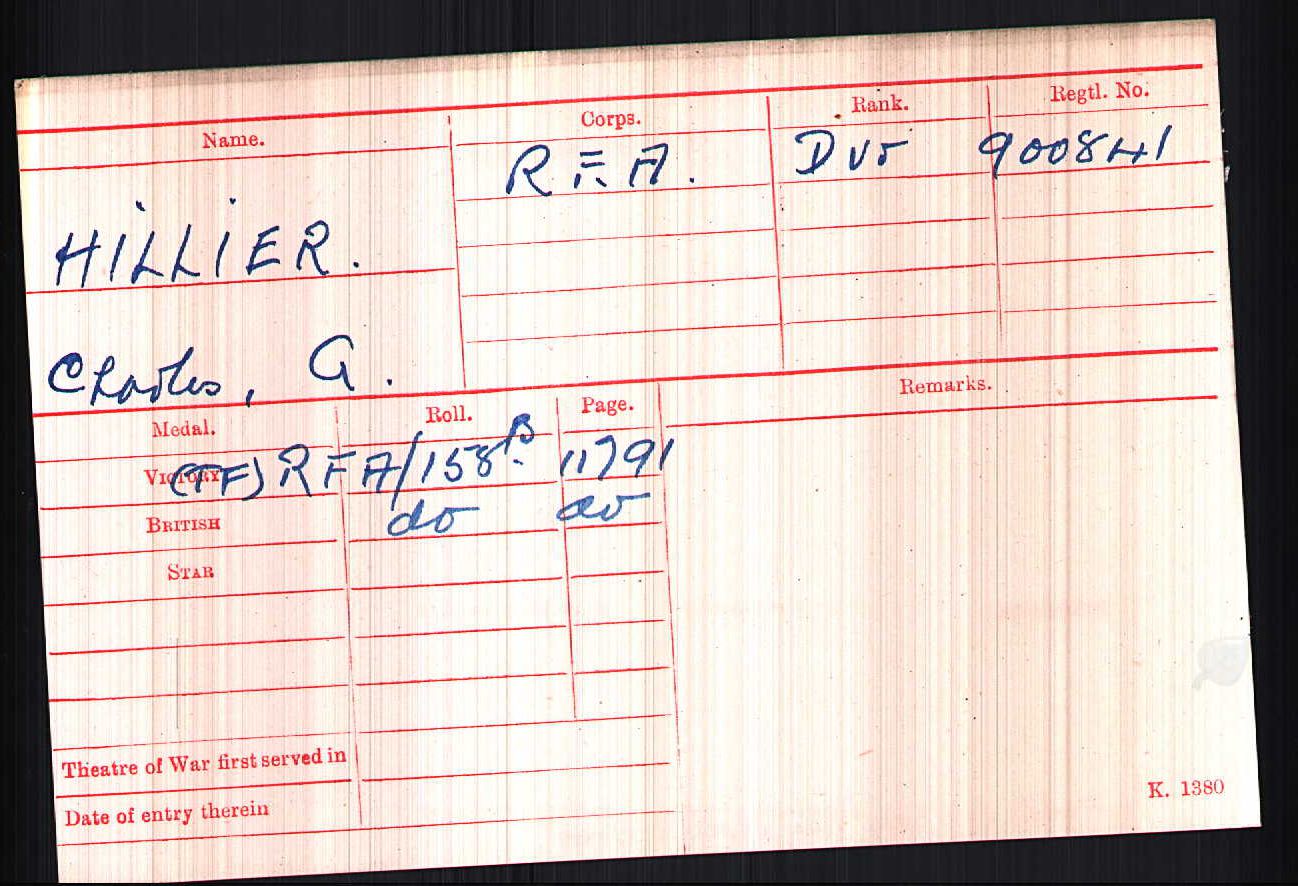 Name. Corps. Rank. Regtl. No.
HILLIER. R.F.A. Dvr 900841
Charles, G.
Medal. Roll. Page. Remarks.
VICTORY (TF) RFA/158B 11791
BRITISH do do
STAR
Theatre of War first served in
Date of entry therein
K. 1380